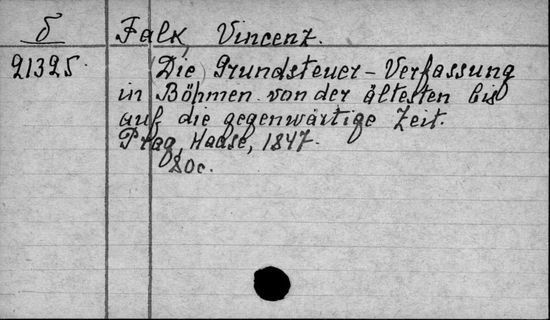 δ Falk, Vincenz.
21325. (Die) Grundsteuer-Verfassung
in Böhmen von der ältesten bis
auf die gegenwärtige Zeit.
Prag, Haase, 1847.
8°c.